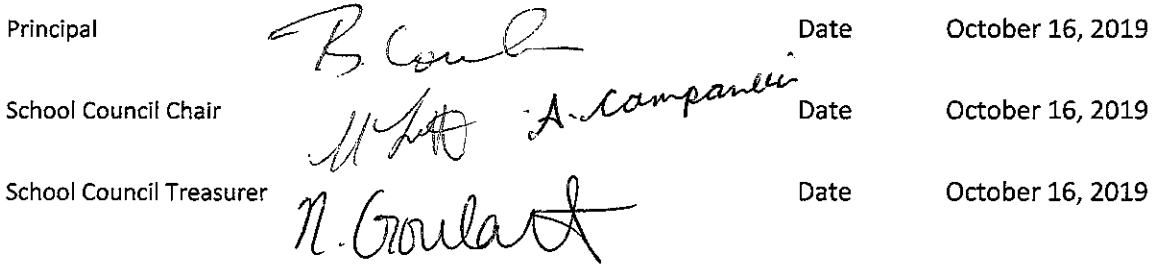 Principal B. Date October 16, 2019
School Council Chair A. Date October 16, 2019
School Council Treasurer N. Goulart Date October 16, 2019